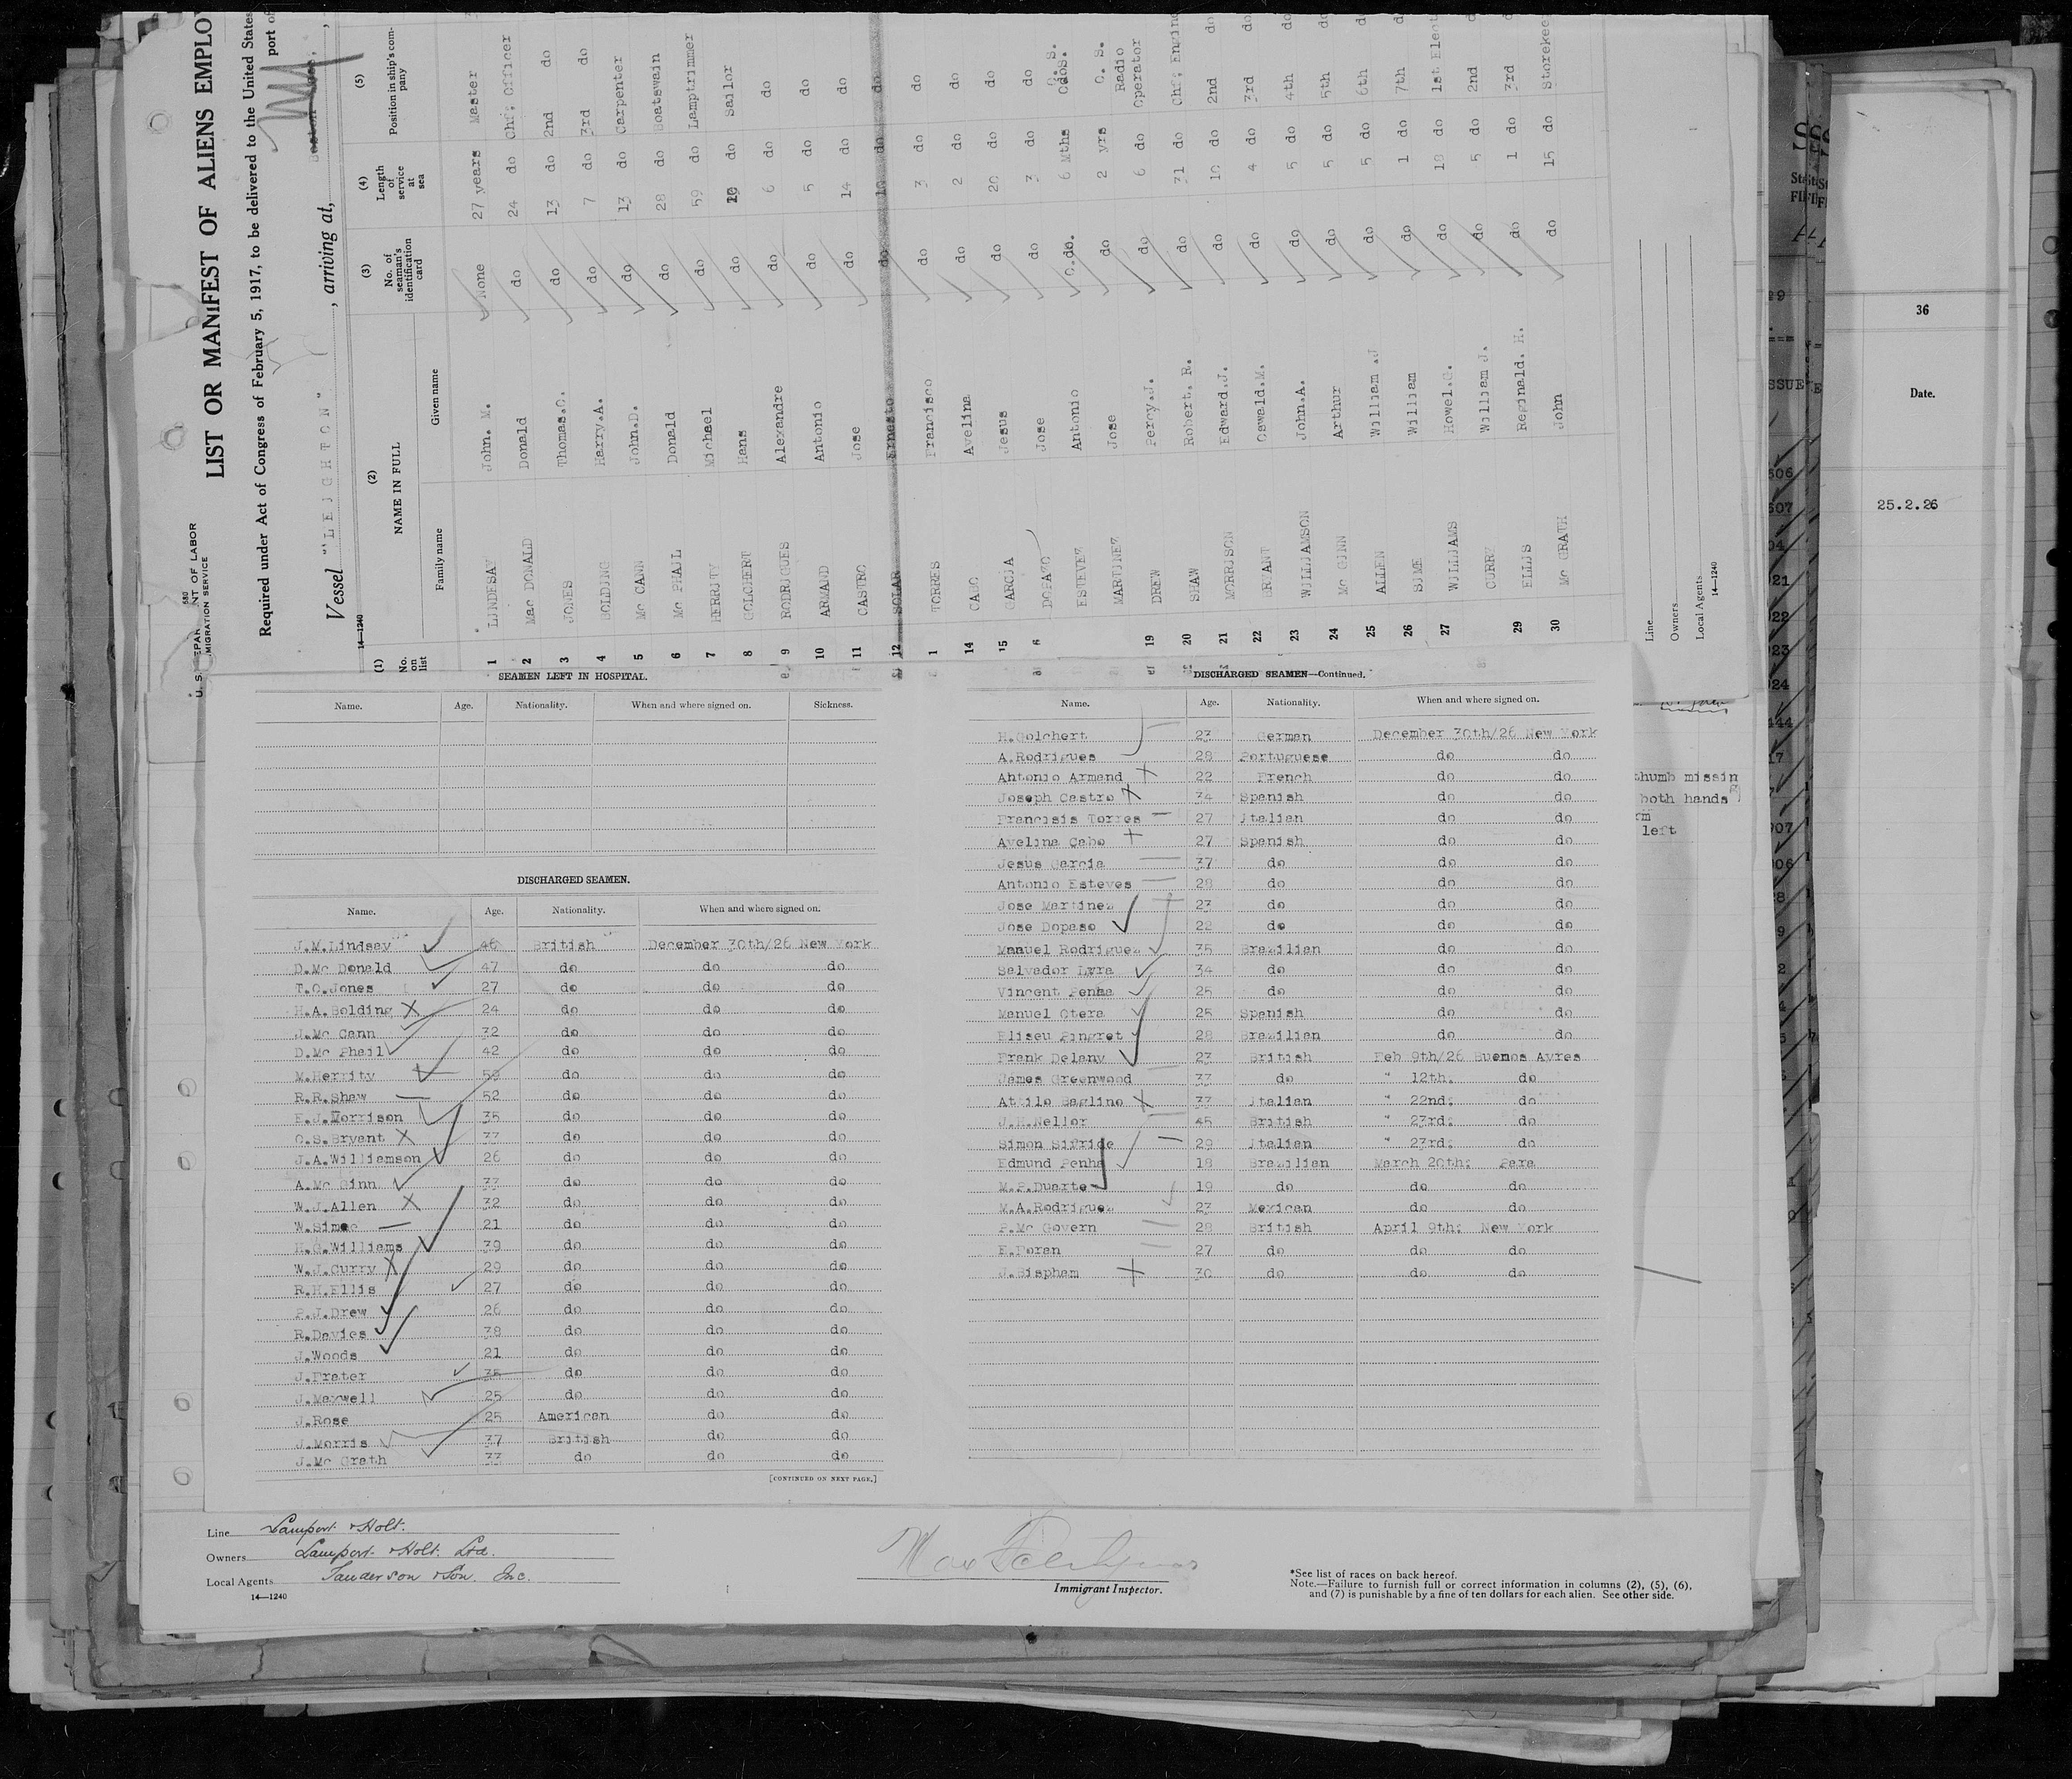 U. S. DEPARTMENT OF LABOR
IMMIGRATION SERVICE
LIST OR MANIFEST OF ALIENS EMPLOY
Required under Act of Congress of February 5, 1917, to be delivered to the United States
port of
Vessel "LEIGHTON", arriving at,
14—1240
(1) No. on list (2) NAME IN FULL (3) No. of seaman's identification card (4) Length of service at sea (5) Position in ship's company
Family name Given name
1 LINDESAY John. M. None 27 years Master
2 Mac DONALD Donald do 24 do Chf; Officer
3 JONES Thomas.O. do 13 do 2nd do
4 BOLDING Harry.A. do 7 do 3rd do
5 Mc CANN John.D. do 13 do Carpenter
6 Mc PHAIL Donald do 28 do Boatswain
7 HERRITY Michael do 59 do Lamptrimmer
8 GOLCHERT Hans do do Sailor
9 RODRIGUES Alexandre do 6 do do
10 ARMAND Antonio do 5 do do
11 CASTRO Jose do 14 do do
12 SOLAR Ernesto do 10 do do
1 TORRES Francisco do 3 do do
14 CABO Avelina do 2 do do
15 GARCIA Jesus do 20 do do
6 DOPAZO Jose do 3 do do
ESTEVEZ Antonio do. 6 Mths O. S.
MARTINEZ Jose do 2 yrs O. S.
19 DREW Percy.J. do 6 do Radio Operator
20 SHAW Robert. R. do 31 do Chf; Engin
21 MORRISON Edward.J. do 10 do 2nd do
22 BRYANT Oswald.M. do 4 do 3rd do
23 WILLIAMSON John.A. do 5 do 4th do
24 Mc GINN Arthur do 5 do 5th do
25 ALLEN William .J do 5 do 6th d
26 SIME William do 1 do 7th d
27 WILLIAMS Howel.G. do 18 do 1st Elect
CURRY William J. do 5 do 2nd d
29 ELLIS Reginald. H. do 1 do 3rd d
30 Mc GRATH John do 15 do Storekee
Line
Owners
Local Agents
14—1240
36
Date.
25.2.26
thumb missin
both hands
rm
left
SEAMEN LEFT IN HOSPITAL.
Name. Age. Nationality. When and where signed on. Sickness.
DISCHARGED SEAMEN.
Name. Age. Nationality. When and where signed on.
J.M.Lindsay 46 British December 30th/26 New York
D.Mc Donald 47 do do do
T.O.Jones 27 do do do
H.A.Bolding 24 do do do
J.Mc Cann 32 do do do
D.Mc Phail 42 do do do
M.Herrity 59 do do do
R.R.Shaw 52 do do do
E.J.Morrison 35 do do do
O.S.Bryant 33 do do do
J.A.Williamson 26 do do do
A.Mc Ginn 33 do do do
W.J.Allen 32 do do do
W.Simes 21 do do do
H.G.Williams 39 do do do
W.J.Curry 29 do do do
R.H.Ellis 27 do do do
P.J.Drew 26 do do do
R.Davies 38 do do do
J.Woods 21 do do do
J.Frater 35 do do do
J.Maxwell 25 do do do
J.Rose 25 American do do
J.Morris 37 British do do
J.Mc Grath 33 do do do
[CONTINUED ON NEXT PAGE.]
DISCHARGED SEAMEN—Continued.
Name. Age. Nationality. When and where signed on.
H.Golchert 23 German December 30th/26 New York
A.Rodrigues 28 Portuguese do do
Ahtonio Armand 22 French do do
Joseph Castro 34 Spanish do do
Francisis Torres 27 Italian do do
Avelina Cabo 27 Spanish do do
Jesus Garcia 37 do do do
Antonio Esteves 28 do do do
Jose Martinez 23 do do do
Jose Dopaso 22 do do do
Manuel Rodriguez 35 Brazilian do do
Salvador Lyra 34 do do do
Vincent Penha 25 do do do
Manuel Otera 25 Spanish do do
Eliseu Pingret 28 Brazilian do do
Frank Delany 23 British Feb 9th/26 Buenos Ayres
James Greenwood 33 do " 12th; do
Attilo Baglino 33 Italian " 22nd; do
J.H.Nellor 45 British " 23rd; do
Simon Sifride 29 Italian " 23rd; do
Edmund Penha 18 Brazilian March 20th; Para
M.P.Duarte 19 do do do
M.A.Rodriguez 23 Mexican do do
P.Mc Govern 28 British April 9th; New York
E.Foran 27 do do do
J.Bispham 30 do do do
Line Lamport & Holt.
Owners Lamport & Holt. Ltd.
Local Agents Sanderson & Son. Inc.
14—1240
Immigrant Inspector.
*See list of races on back hereof.
Note.—Failure to furnish full or correct information in columns (2), (5), (6),
and (7) is punishable by a fine of ten dollars for each alien. See other side.